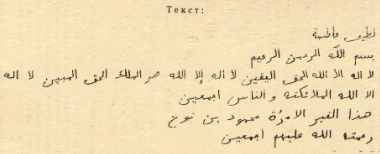 Текст:
لطيف فاطمة
بسم الله الرحمن الرحيم
لا اله الا الله الحق اليقين لا اله إلا الله هو الملك الحق المبين لا اله
الا الله الملائكة والناس اجمعين
هذا القبر محمود بن نوح
رحمة الله عليهم اجمعين